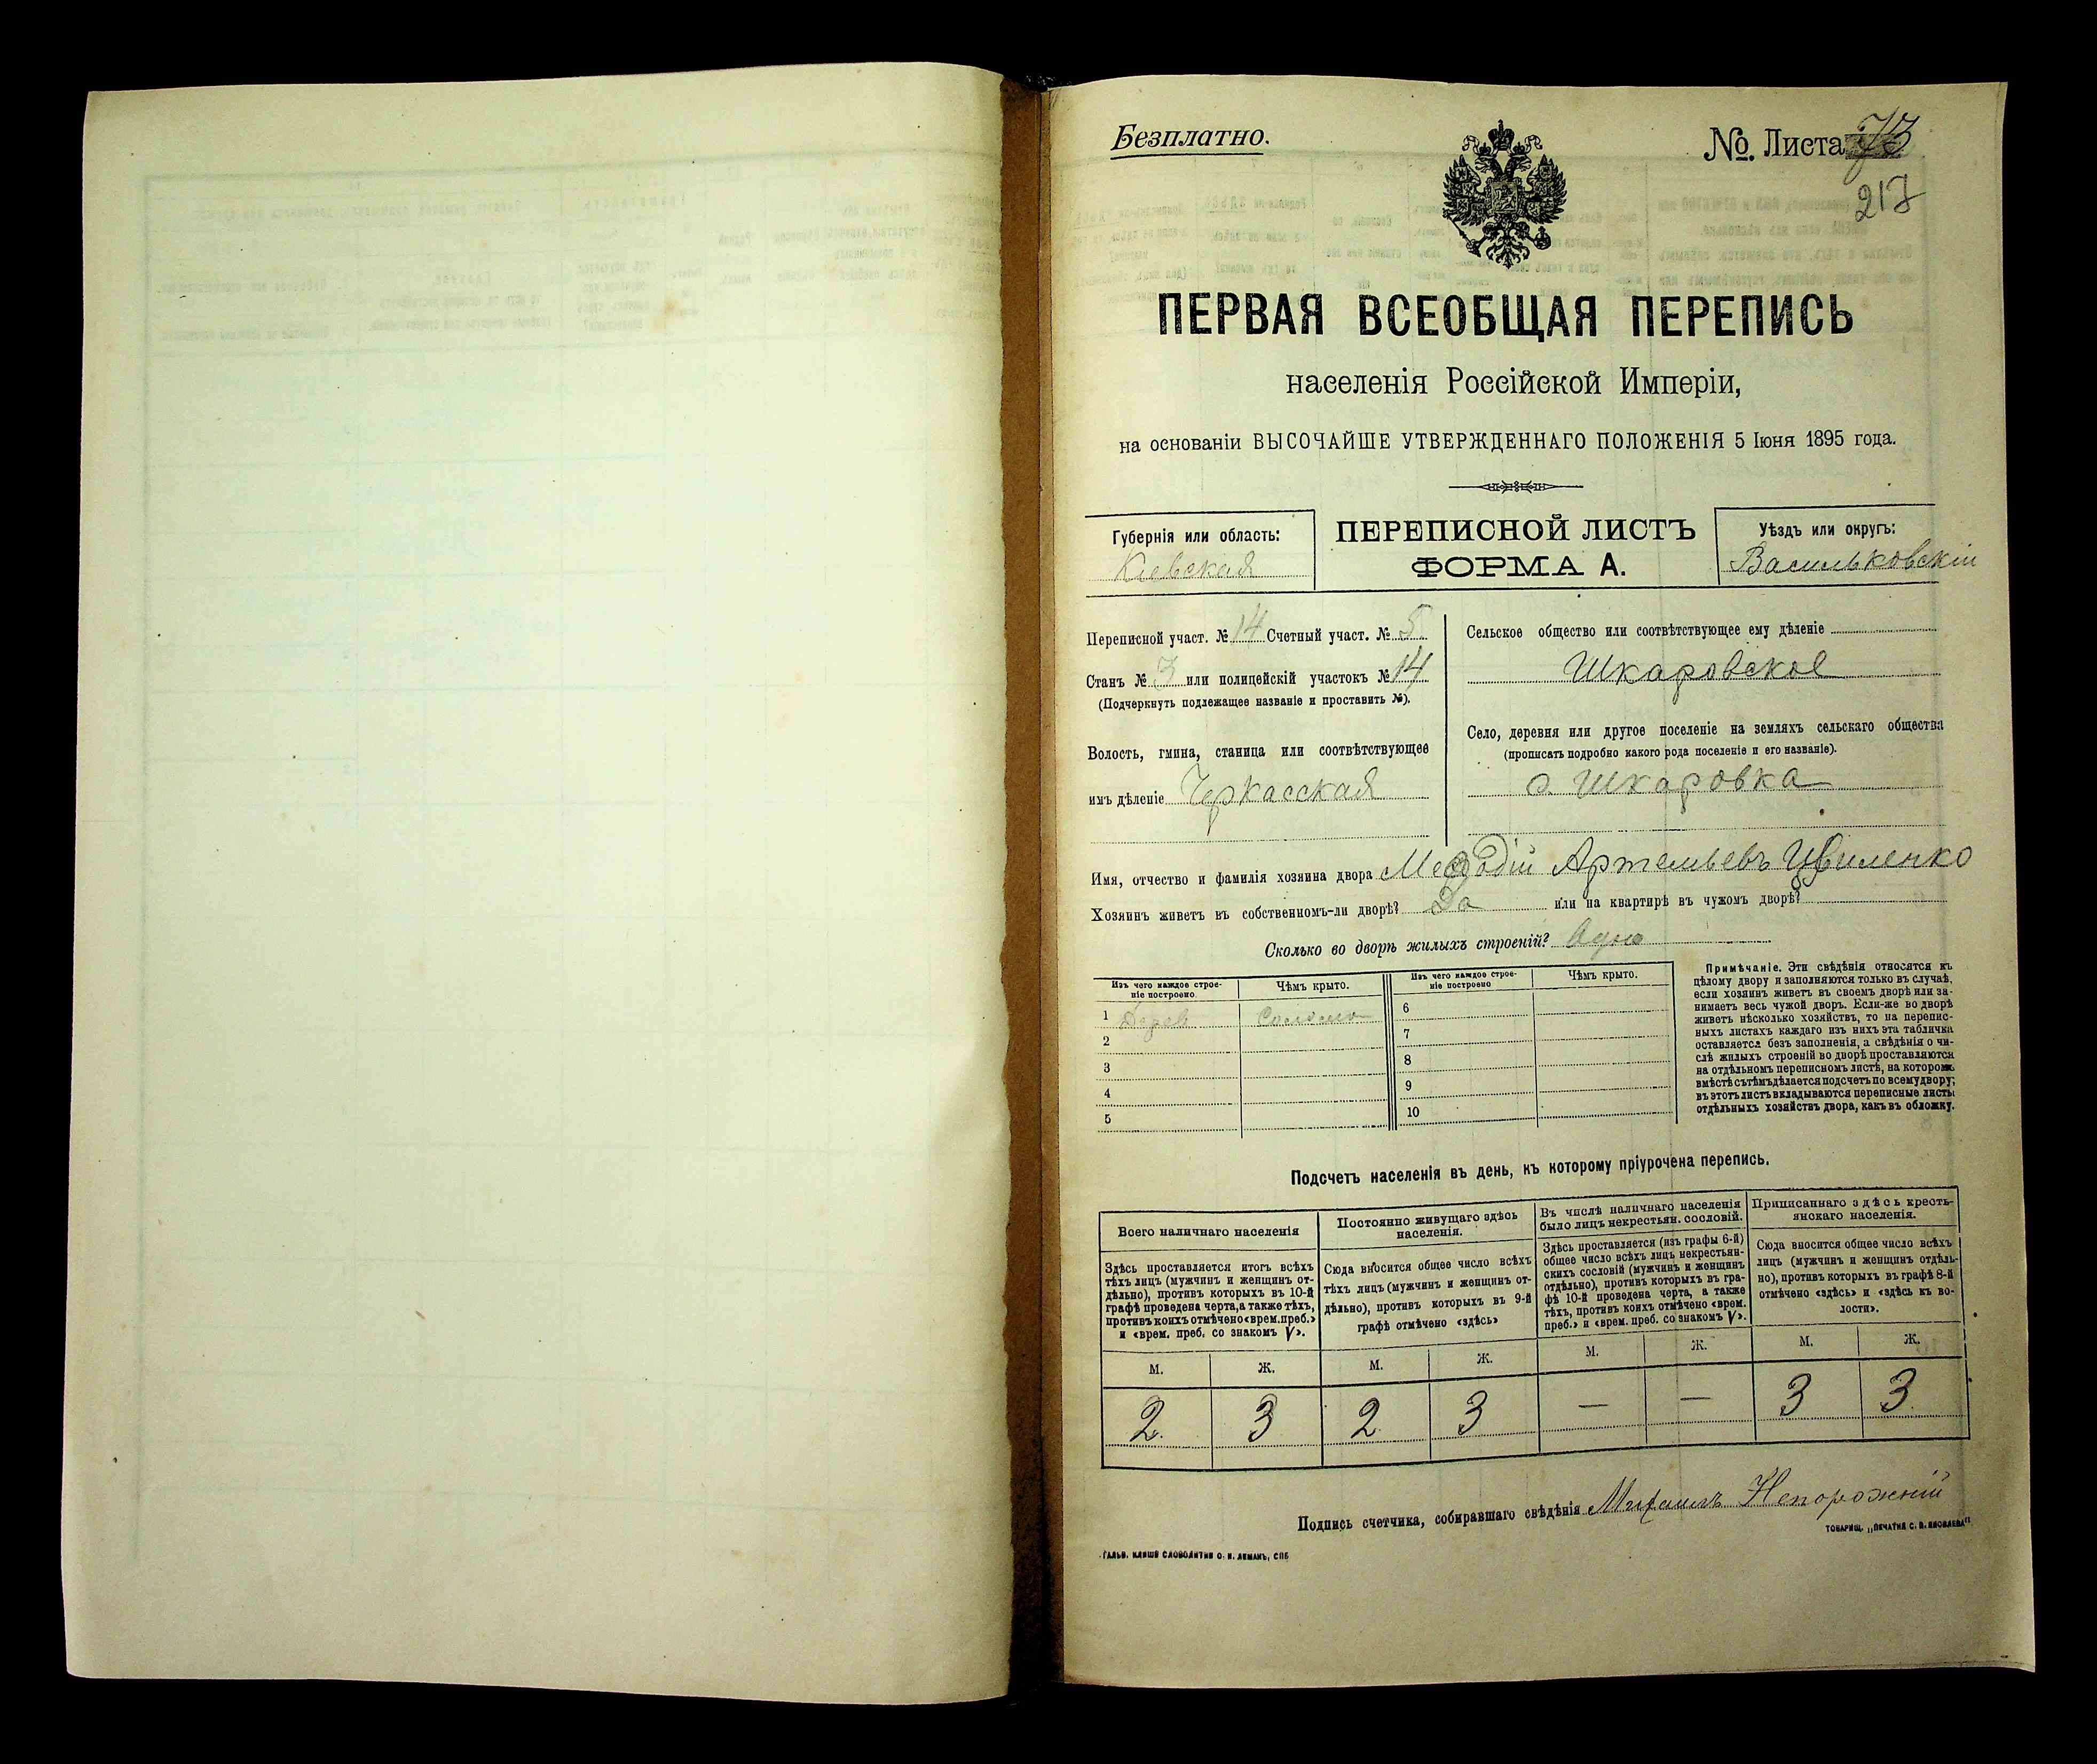 Безплатно.
№ Листа 73
217
ПЕРВАЯ ВСЕОБЩАЯ ПЕРЕПИСЬ
населенія Россійской Имперіи,
на основаніи ВЫСОЧАЙШЕ УТВЕРЖДЕННАГО ПОЛОЖЕНІЯ 5 Іюня 1895 года.
Губернія или область:
Кіевская
ПЕРЕПИСНОЙ ЛИСТЪ
ФОРМА А.
Уѣздъ или округъ:
Васильковскій
Переписной участ. № 14 Счетный участ. № 5
Станъ № 3 или полицейскій участокъ № 14
(Подчеркнуть подлежащее названіе и проставить №).
Волость, гмина, станица или соотвѣтствующее
имъ дѣленіе Черкасская
Сельское общество или соотвѣтствующее ему дѣленіе
Шкаровское
Село, деревня или другое поселеніе на земляхъ сельскаго общества
(прописать подробно какого рода поселеніе и его названіе).
с. Шкаровка
Имя, отчество и фамилія хозяина двора Мефодій Артемьевъ Цвиленко
Хозяинъ живетъ въ собственномъ-ли дворѣ? Да или на квартирѣ въ чужомъ дворѣ?
Сколько во дворѣ жилыхъ строеній? Одно
Изъ чего каждое строе-
ніе построено
Чѣмъ крыто.
Изъ чего каждое строе-
ніе построено
Чѣмъ крыто.
1 Дерев Соломою
2
3
4
5
6
7
8
9
10
Примѣчаніе. Эти свѣдѣнія относятся къ
цѣлому двору и заполняются только въ случаѣ,
если хозяинъ живетъ въ своемъ дворѣ или за-
нимаетъ весь чужой дворъ. Если-же во дворѣ
живетъ нѣсколько хозяйствъ, то на перепис-
ныхъ листахъ каждаго изъ нихъ эта табличка
оставляется безъ заполненія, а свѣдѣнія о чи-
слѣ жилыхъ строеній во дворѣ проставляются
на отдѣльномъ переписномъ листѣ, на которомъ
вмѣстѣ съ тѣмъ дѣлается подсчетъ по всему двору;
въ этотъ листъ вкладываются переписные листы
отдѣльныхъ хозяйствъ двора, какъ въ обложку.
Подсчетъ населенія въ день, къ которому пріурочена перепись.
Всего наличнаго населенія
Здѣсь проставляется итогъ всѣхъ
тѣхъ лицъ (мужчинъ и женщинъ от-
дѣльно), противъ которыхъ въ 10-й
графѣ проведена черта, а также тѣхъ,
противъ коихъ отмѣчено «врем. преб.»
и «врем. преб. со знакомъ V».
Постоянно живущаго здѣсь
населенія.
Сюда вносится общее число всѣхъ
тѣхъ лицъ (мужчинъ и женщинъ от-
дѣльно), противъ которыхъ въ 9-й
графѣ отмѣчено «здѣсь»
Въ числѣ наличнаго населенія
было лицъ некрестьян. сословій.
Здѣсь проставляется (изъ графы 6-й)
общее число всѣхъ лицъ некрестьян-
скихъ сословій (мужчинъ и женщинъ
отдѣльно), противъ которыхъ въ гра-
фѣ 10-й проведена черта, а также
тѣхъ, противъ коихъ отмѣчено «врем.
преб.» и «врем. преб. со знакомъ V».
Приписаннаго здѣсь кресть-
янскаго населенія.
Сюда вносится общее число всѣхъ
лицъ (мужчинъ и женщинъ отдѣль-
но), противъ которыхъ въ графѣ 8-й
отмѣчено «здѣсь» и «здѣсь къ во-
лости».
М. Ж. М. Ж. М. Ж. М. Ж.
2 3 2 3 — — 3 3
Подпись счетчика, собиравшаго свѣдѣнія Михаилъ Непорожній
ТОВАРИЩ. „ПЕЧАТНЯ С. П. ЯКОВЛЕВА"
ГАЛЬВ. КЛИШЕ СЛОВОЛИТНИ О. И. ЛЕМАНЪ, СПБ